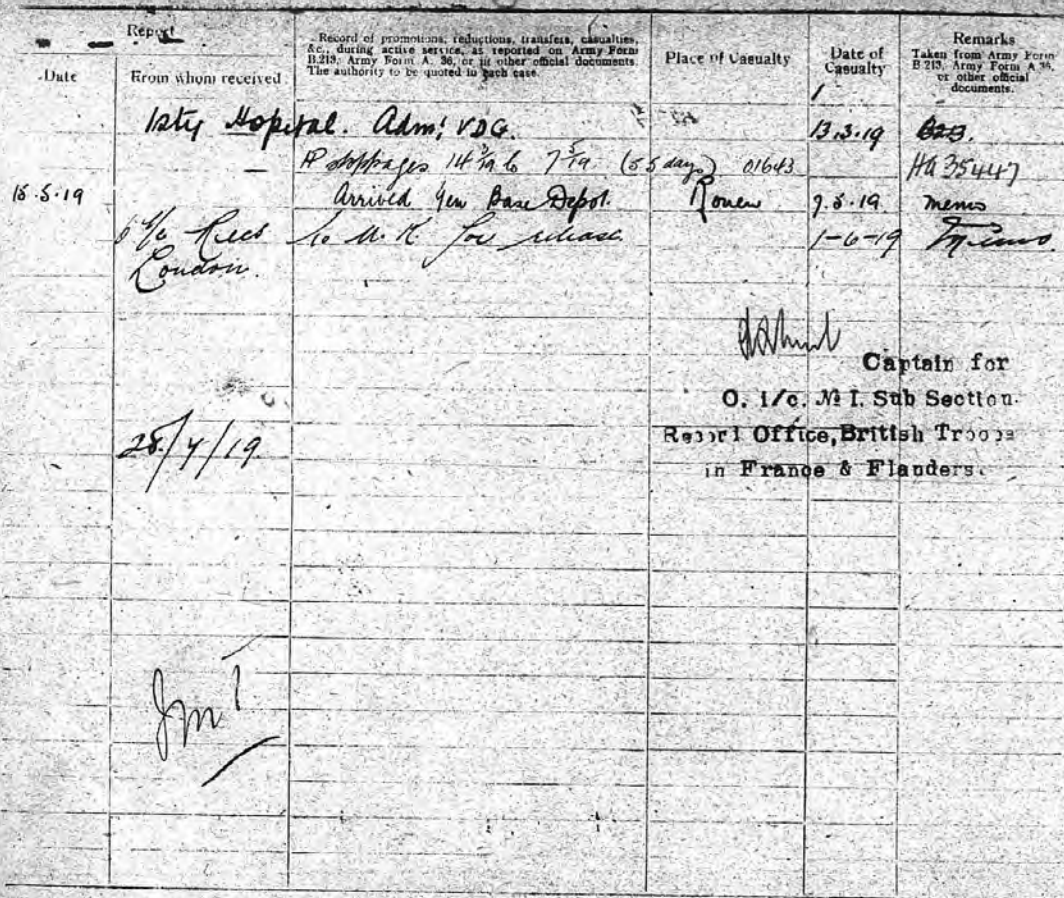 Report
Date
From whom received
Record of promotions, reductions, transfers, casualties,
&c., during active service, as reported on Army Form
B 213, Army Form A. 36, or in other official documents.
The authority to be quoted in each case.
Place of Casualty
Date of
Casualty
Remarks
Taken from Army Form
B 213, Army Form A 36,
or other official
documents.
Hopital. Adm: VDG. 13.3.19 B213.
stoppages 14/3/19 to 7/5/19 (55 days) 01643 HA 35447
15.5.19 Arrived Gen Base Depot. Rouen 7.5.19. memo
to U.K. for release 1-6-19 Memo
London.
Captain for
O. i/c. No 1. Sub Section.
Record Office, British Troops
in France & Flanders.